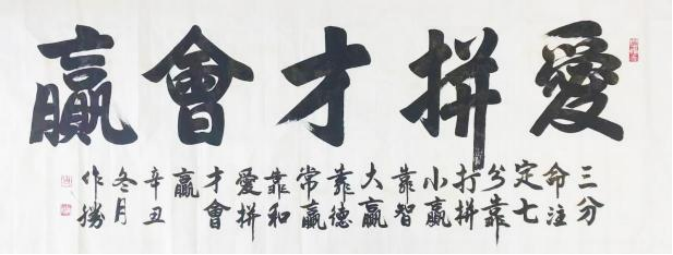 愛拼才會贏
三分
命注
定七
分靠
打拼
小贏
靠智
大贏
靠德
常贏
靠和
愛拼
才會
贏
辛丑
冬月
作勝